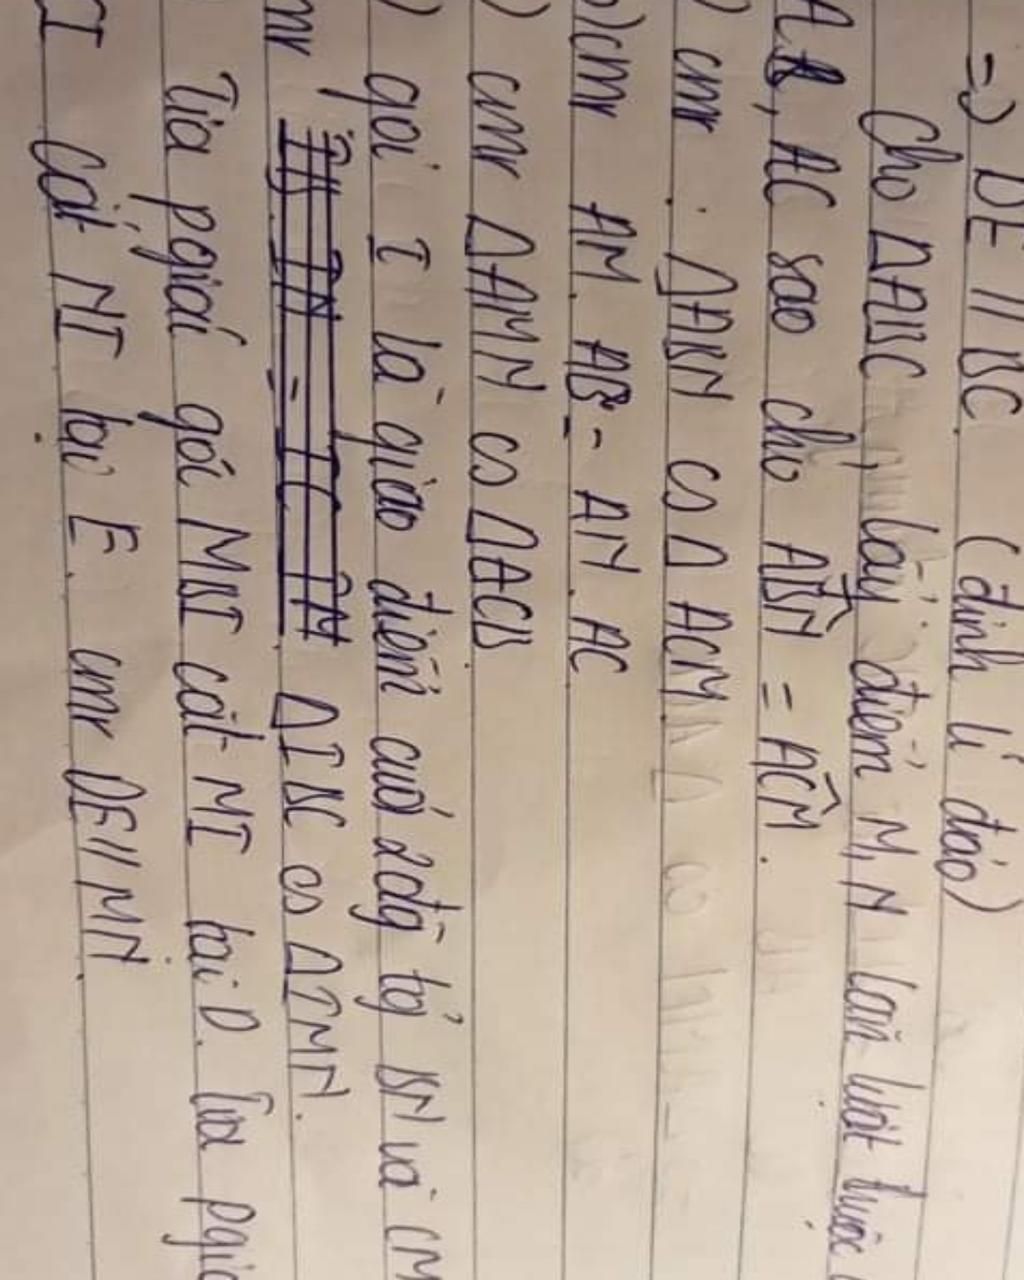 => DE // BC. (định lí đảo)
Cho ΔABC, lấy điểm M, N lần lượt thuộc
AB, AC sao cho AB̂N = AĈM.
) cmr : ΔABN ∽ Δ ACM
b) cmr AM. AB = AN. AC
) cmr ΔAMN ∽ ΔACB
) gọi I là giao điểm cuả 2đg tg BN và CM
mr ΔIBC ∽ ΔIMN.
Tia pgiác góc MBI cắt MI tại D. Tia
CI cắt NI tại E. cmr DE // MN